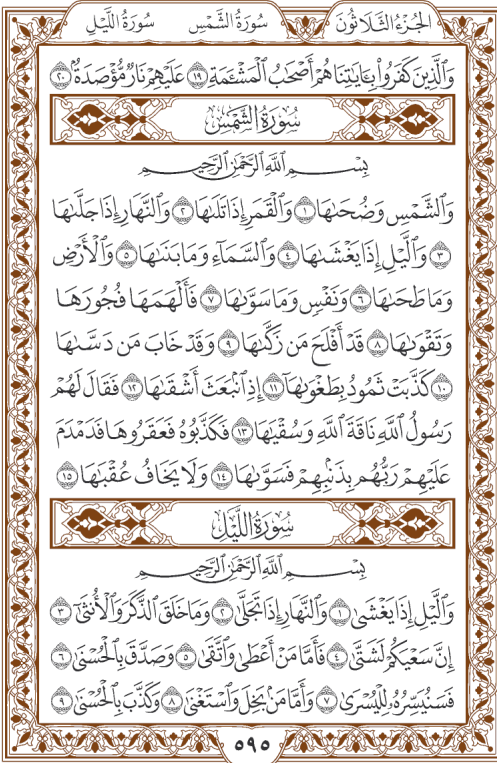 الجُزْءُ الثَّلَاثُونَ سُورَةُ الشَّمْسِ سُورَةُ اللَّيْلِ
وَالَّذِينَ كَفَرُوا بِـَٔايَـٰتِنَا هُمْ أَصْحَـٰبُ الْمَشْـَٔمَةِ ١٩ عَلَيْهِمْ نَارٌ مُّؤْصَدَةٌۢ ٢٠
سُورَةُ الشَّمْسِ
بِسْمِ اللَّهِ الرَّحْمَـٰنِ الرَّحِيمِ
وَالشَّمْسِ وَضُحَىٰهَا ١ وَالْقَمَرِ إِذَا تَلَىٰهَا ٢ وَالنَّهَارِ إِذَا جَلَّىٰهَا
٣ وَالَّيْلِ إِذَا يَغْشَىٰهَا ٤ وَالسَّمَآءِ وَمَا بَنَىٰهَا ٥ وَالْأَرْضِ
وَمَا طَحَىٰهَا ٦ وَنَفْسٍ وَمَا سَوَّىٰهَا ٧ فَأَلْهَمَهَا فُجُورَهَا
وَتَقْوَىٰهَا ٨ قَدْ أَفْلَحَ مَن زَكَّىٰهَا ٩ وَقَدْ خَابَ مَن دَسَّىٰهَا
١٠ كَذَّبَتْ ثَمُودُ بِطَغْوَىٰهَآ ١١ إِذِ انۢبَعَثَ أَشْقَىٰهَا ١٢ فَقَالَ لَهُمْ
رَسُولُ اللَّهِ نَاقَةَ اللَّهِ وَسُقْيَـٰهَا ١٣ فَكَذَّبُوهُ فَعَقَرُوهَا فَدَمْدَمَ
عَلَيْهِمْ رَبُّهُم بِذَنۢبِهِمْ فَسَوَّىٰهَا ١٤ وَلَا يَخَافُ عُقْبَـٰهَا ١٥
سُورَةُ اللَّيْلِ
بِسْمِ اللَّهِ الرَّحْمَـٰنِ الرَّحِيمِ
وَالَّيْلِ إِذَا يَغْشَىٰ ١ وَالنَّهَارِ إِذَا تَجَلَّىٰ ٢ وَمَا خَلَقَ الذَّكَرَ وَالْأُنثَىٰٓ ٣
إِنَّ سَعْيَكُمْ لَشَتَّىٰ ٤ فَأَمَّا مَنْ أَعْطَىٰ وَاتَّقَىٰ ٥ وَصَدَّقَ بِالْحُسْنَىٰ ٦
فَسَنُيَسِّرُهُۥ لِلْيُسْرَىٰ ٧ وَأَمَّا مَنۢ بَخِلَ وَاسْتَغْنَىٰ ٨ وَكَذَّبَ بِالْحُسْنَىٰ ٩
٥٩٥